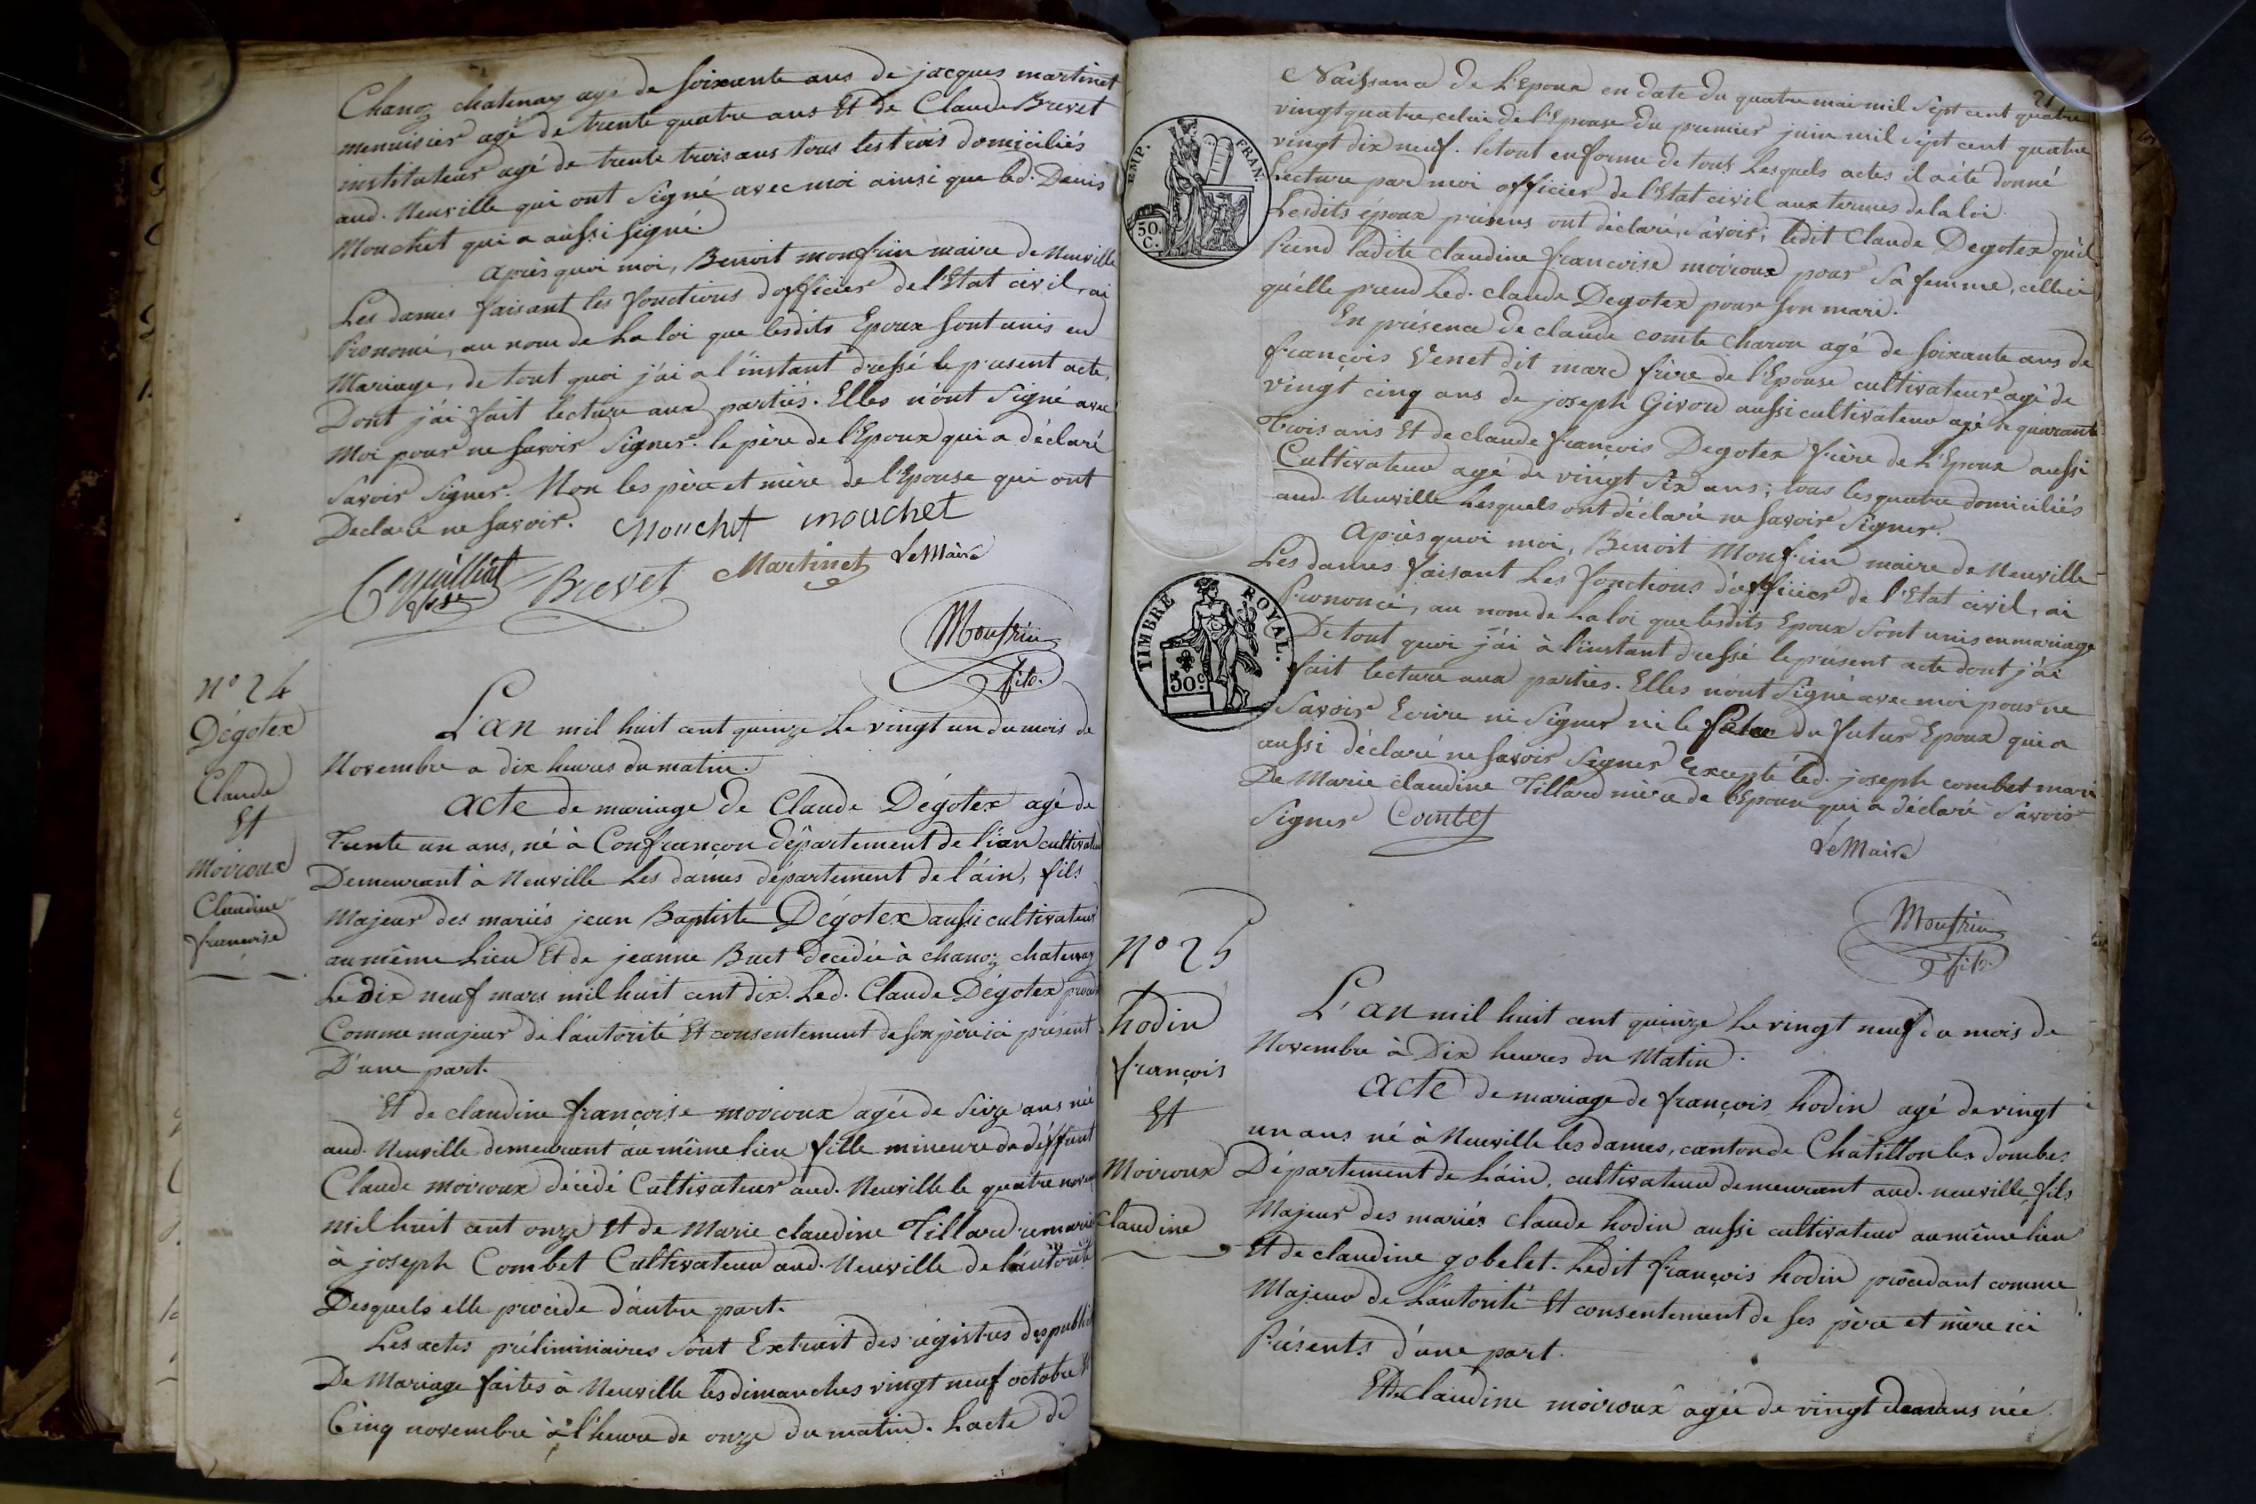 Chanoz chatenay age de soixante ans de jacques martinet
menuisier agé de trente quatre ans Et de Claude Brevet
instituteur agé de trente trois ans tous les trois domiciliés
aud. Neuville qui ont signé avec moi ainsi que led. Denis
Mouchet qui a aussi signé.
après quoi moi, Benoit monfrin maire de Neuville
Les dames faisant les fonctions d'officier de l'Etat civil, ai
Prononcé, au nom de La loi que lesdits Epoux sont unis en
Mariage, de tout quoi j'ai a l'instant dressé le present acte,
Dont j'ai fait lecture aux parties. Elles n'ont signé avec
Moi pour ne savoir signer. le père de l'Epoux qui a déclaré
savoir signer. Non les père et mère de l'Epouse qui ont
Declaré ne savoir. Mouchet mouchet
Brevet Martinet Le Maire
Monfrin
fils.
N° 24
Dégotex
Claude
Et
Moiroux
Claudine
françoise
L'an mil huit cent quinze Le vingt un du mois de
Novembre a dix heures du matin.
Acte de mariage de Claude Dégotex agé de
Trente un ans, né à Confrançon département de l'ain cultivateur
Demeurant à Neuville Les dames département de l'ain, fils
Majeur des mariés jean Baptiste Dégotex aussi cultivateur
au même Lieu Et de jeanne Buet décédée à chanoz chatenay
Le Dix neuf mars mil huit cent dix. Led. Claude Dégotex
Comme majeur de l'autorité Et consentement de son père ici présent
D'une part.
Et de claudine françoise moiroux agée de seize ans née
aud. Neuville demeurant au même lieu fille mineure de deffunt
Claude moiroux décédé Cultivateur aud. Neuville le quatre
mil huit cent onze Et de Marie claudine Tillard remariée
à joseph Combet Cultivateur aud. Neuville de l'autorité
Desquels elle procède d'autre part.
Les actes préliminaires sont Extrait des régistres des
De Mariage faites à Neuville les dimanches vingt neuf octobre Et
Cinq novembre à l'heure de onze du matin. L'acte de
21
Naissance de L'Epoux en date du quatre mai mil sept cent quatre
vingt quatre, celui de l'Epouse du premier juin mil sept cent quatre
vingt dix neuf. le tout en forme de tous Lesquels actes il a été donné
Lecture par moi officier de l'Etat civil aux termes de la loi.
Lesdits époux présens ont déclaré, savoir; ledit Claude Degotex qu'il
Prend ladite claudine françoise moiroux pour sa femme, celle ci
qu'elle prend Led. claude Degotex pour son mari.
En présence de claude comte charon agé de soixante ans de
françois Venet dit marc frère de l'Epouse cultivateur agé de
vingt cinq ans de joseph Girou aussi cultivateur agé de quarante
Trois ans Et de claude françois Degotex frère de L'Epoux aussi
Cultivateur agé de vingt six ans; tous les quatre domiciliés
aud. Neuville Lesquels ont déclaré ne savoir signer.
Après quoi moi, Benoit Monfrin maire de Neuville
Les dames faisant Les fonctions d'officier de l'Etat civil, ai
Prononcé, au nom de La loi que lesdits Epoux sont unis en mariage
De tout quoi j'ai à l'instant dressé le présent acte dont j'ai
fait lecture aux parties. Elles n'ont signé avec moi pour ne
savoir Ecrire ni signer ni le père du futur Epoux qui a
aussi déclaré ne savoir signer Excepté led. joseph combet mari
De Marie claudine Tillard mère de l'Epoux qui a déclaré savoir
Signer Combet
Le Maire
Monfrin
fils.
EMP. FRAN.
50. C.
TIMBRE ROYAL.
50 c.
N° 25
hodin
françois
Et
Moiroux
Claudine
L'an mil huit cent quinze Le vingt neuf du mois de
Novembre à Dix heures du Matin.
Acte de mariage de françois hodin agé de vingt
un ans né à Neuville les dames, canton de Châtillon les dombes
Département de L'ain, cultivateur demeurant aud. neuville, fils
Majeur des mariés claude hodin aussi cultivateur au même lieu
Et de claudine gobelet. Ledit françois hodin procédant comme
Majeur de L'autorité Et consentement de ses père et mère ici
Présents d'une part.
Et de claudine moiroux agée de vingt deux ans née